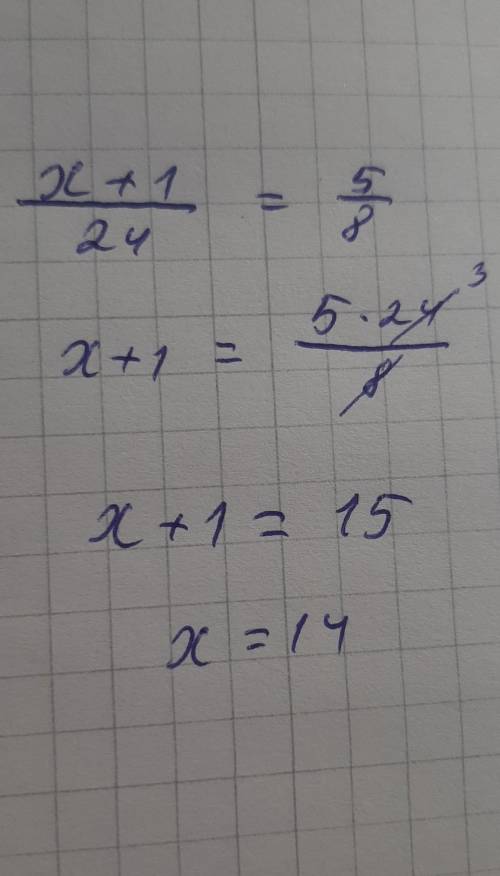 x + 1 / 24 = 5 / 8
x + 1 = 5 · 24 3 / 8
x + 1 = 15
x = 14